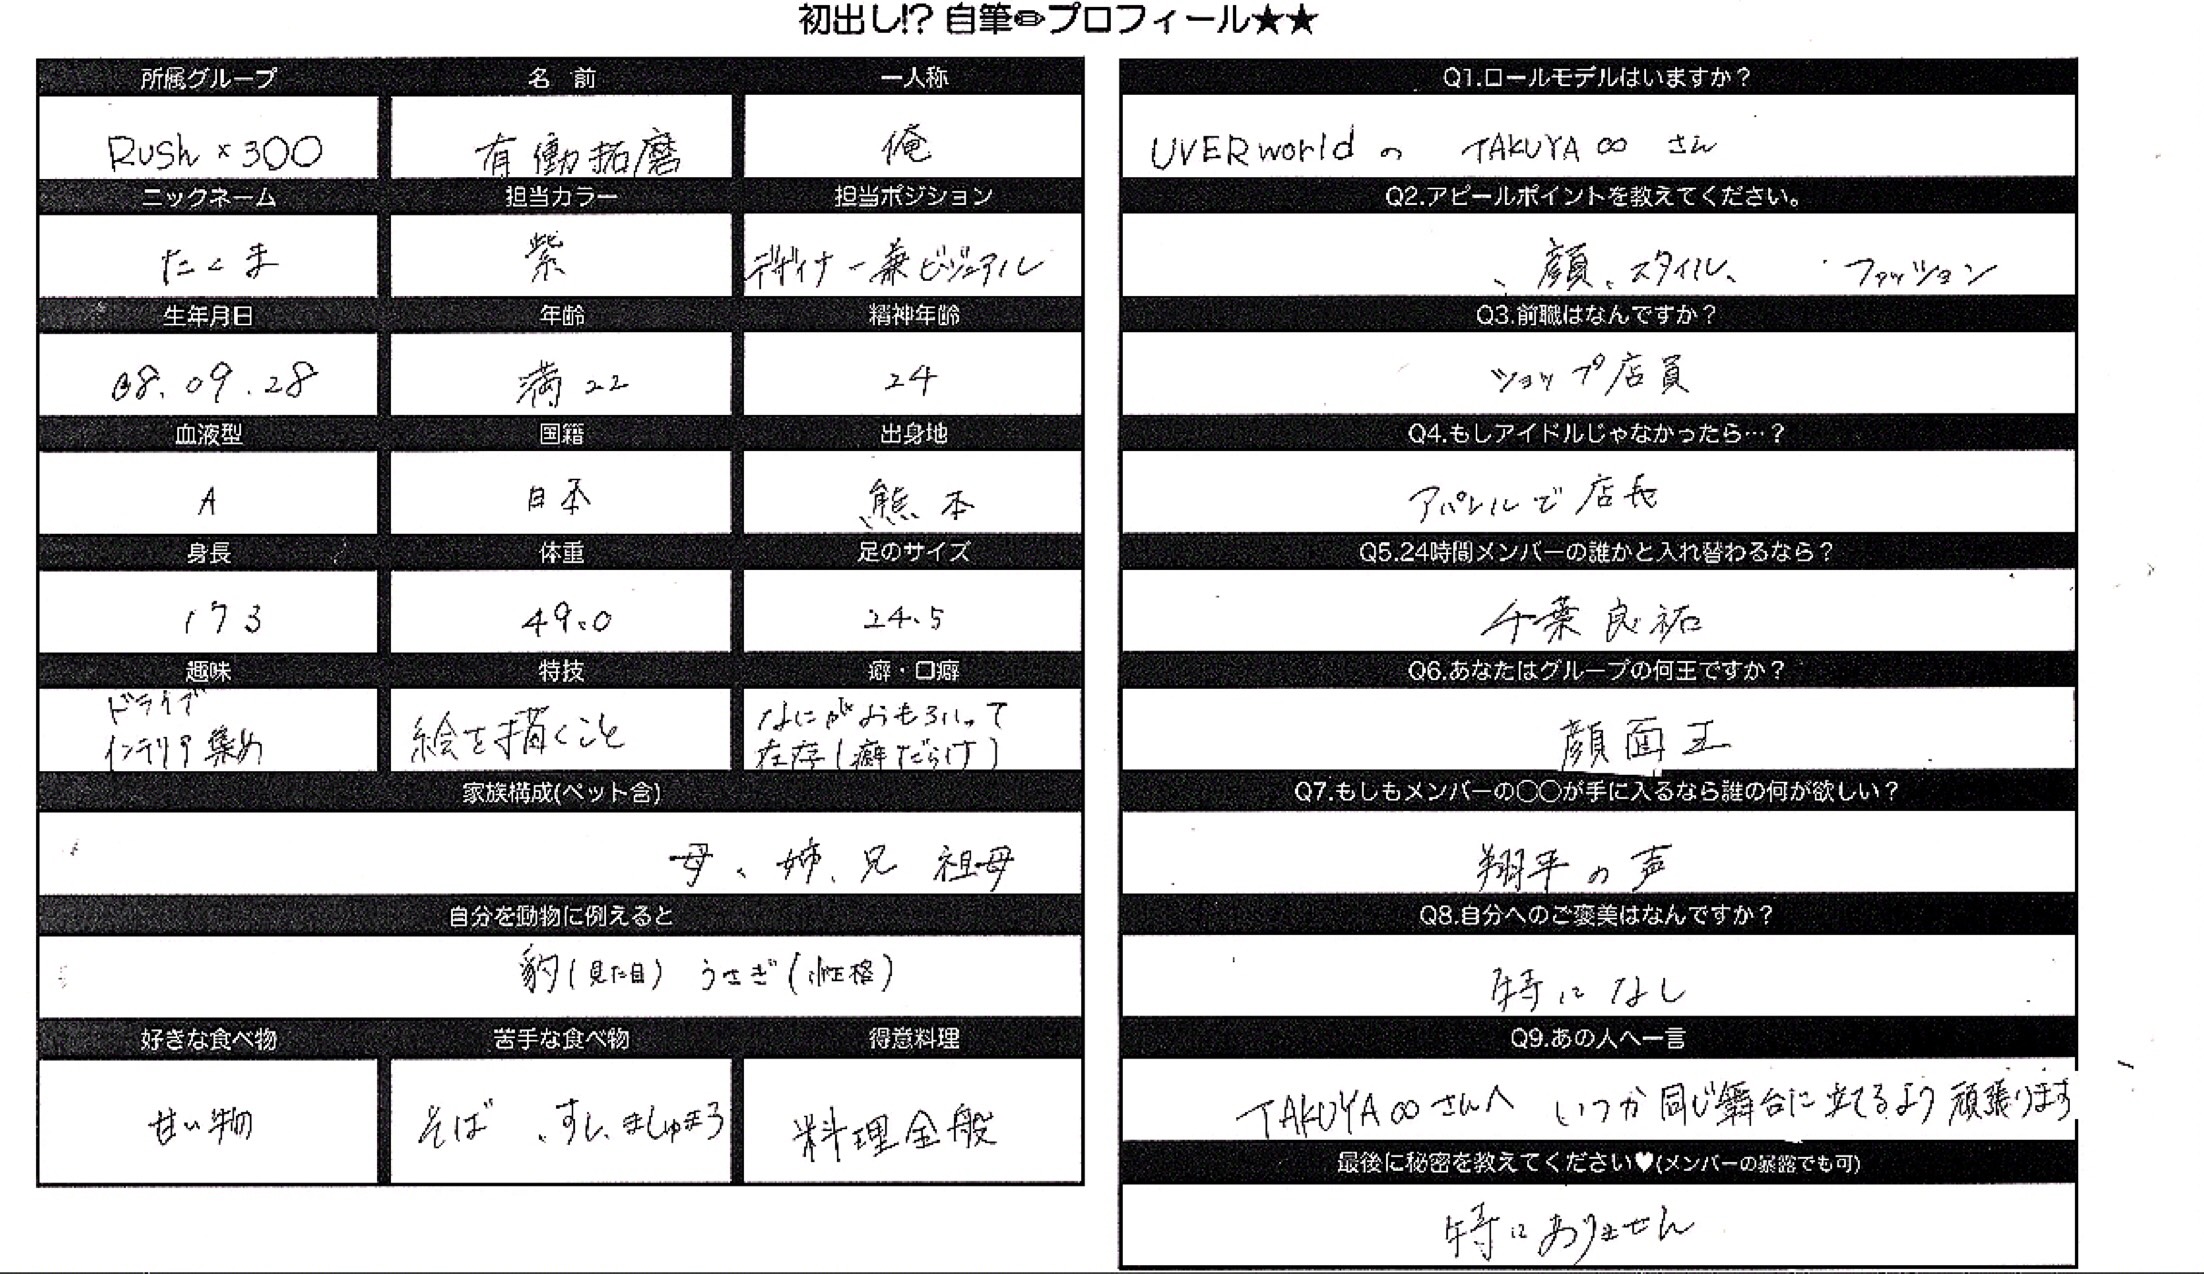 初出し!? 自筆✏プロフィール★★
所属グループ 名 前 一人称
Rush×300 有働拓磨 俺
ニックネーム 担当カラー 担当ポジション
たくま 紫 デザイナー兼ビジュアル
生年月日 年齢 精神年齢
08.09.28 満22 24
血液型 国籍 出身地
A 日本 熊本
身長 体重 足のサイズ
173 49.0 24.5
趣味 特技 癖・口癖
ドライブ
インテリア集め
絵を描くこと
なにがおもろいって
在存(癖だらけ)
家族構成(ペット含)
母、姉、兄 祖母
自分を動物に例えると
豹(見た目) うさぎ(性格)
好きな食べ物 苦手な食べ物 得意料理
甘い物 そば、すし、ましゅまろ 料理全般
Q1.ロールモデルはいますか？
UVERworldの TAKUYA∞さん
Q2.アピールポイントを教えてください。
、顔、スタイル、 ファッション
Q3.前職はなんですか？
ショップ店員
Q4.もしアイドルじゃなかったら…？
アパレルで店長
Q5.24時間メンバーの誰かと入れ替わるなら？
千葉良祐
Q6.あなたはグループの何王ですか？
顔面王
Q7.もしもメンバーの○○が手に入るなら誰の何が欲しい？
翔平の声
Q8.自分へのご褒美はなんですか？
特になし
Q9.あの人へ一言
TAKUYA∞さんへ いつか同じ舞台に立てるよう頑張ります
最後に秘密を教えてください♥(メンバーの暴露でも可)
特にありません